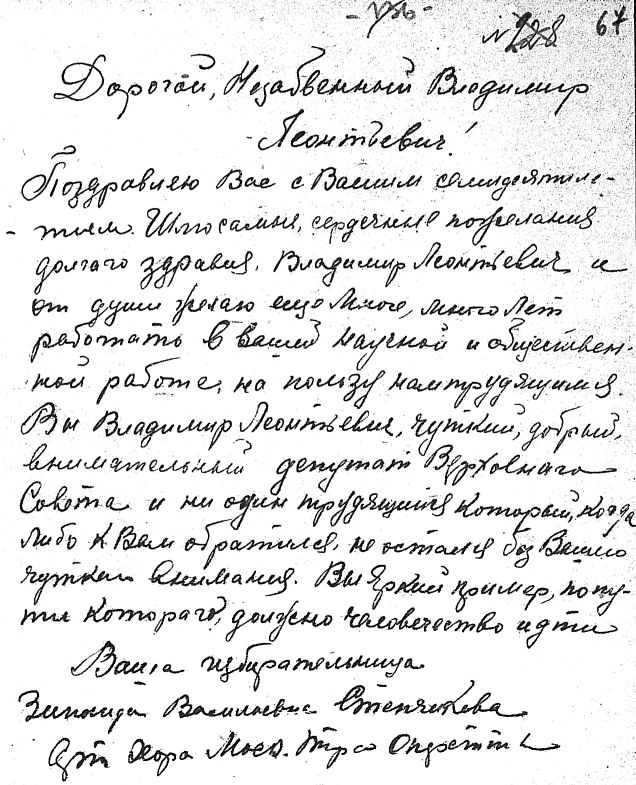 67
Дорогой, Незабвенный Владимир
Леонтьевич!
Поздравляю Вас с Вашим семидесятиле-
тием. Шлю самые, сердечные пожелания
долгаго здравия, Владимир Леонтьевич и
от души желаю еще много, много лет
работать в вашей научной и обществен-
ной работе, на пользу нам трудящимся.
Вы Владимир Леонтьевич, чуткий, добрый,
внимательный депутат Верховнаго
Совета и ни один трудящийся который, когда
либо к Вам обратился, не остался без Вашего
чуткаго внимания. Вы яркий пример, по пу-
ти котораго, должно человечество идти
Ваша избирательница
Зинаида Васильевна
Арт Хора Моск. т-ра Оперетты